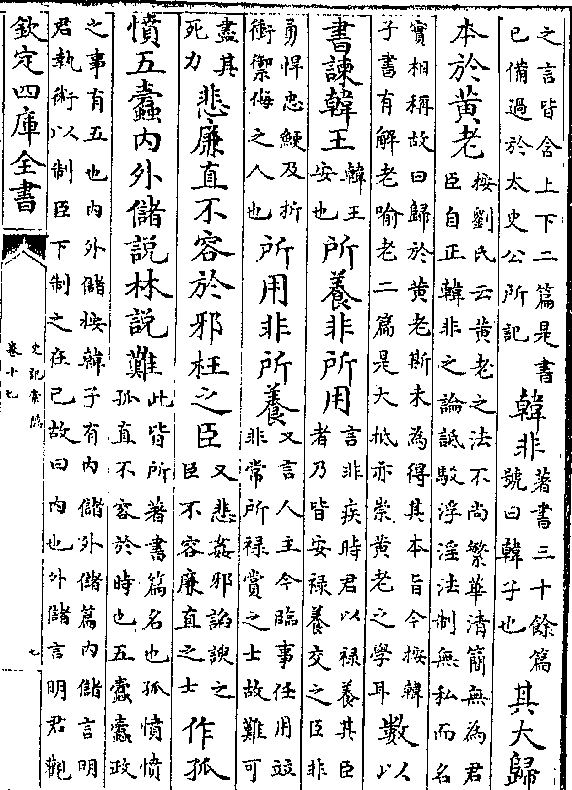 之言皆含上下二篇是書
已備過於太史公所記
韓非
著書三十餘篇
號曰韓子也
其大歸
本於黄老
按劉氏云黄老之法不尚繁華清簡無為君
臣自正韓非之論詆駮浮淫法制無私而名
實相稱故曰歸於黄老斯未為得其本旨今按韓
子書有解老喻老二篇是大抵亦崇黄老之學耳
數以
書諫韓王
韓王
安也
所養非所用
言非疾時君以禄養其臣
者乃皆安禄養交之臣非
勇悍忠鯁及折
衝禦侮之人也
所用非所養
又言人主今臨事任用竝
非常所禄賞之士故難可
盡其
死力
悲廉直不容於邪枉之臣
又悲姦邪諂諛之
臣不容廉直之士
作孤
憤五蠹内外儲説林説難
此皆所著書篇名也孤憤憤
孤直不容於時也五蠹蠹政
之事有五也内外儲按韓子有内儲外儲篇内儲言明
君執術以制臣下制之在己故曰内也外儲言明君觀
欽定四庫全書
史記索隱
卷十七
七